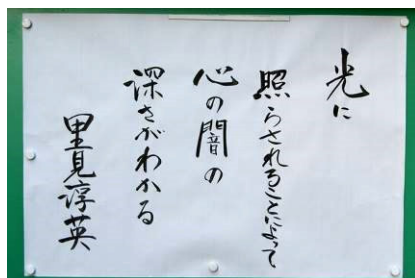 光に
照らされることによって
心の闇の
深さがわかる
里見淳英